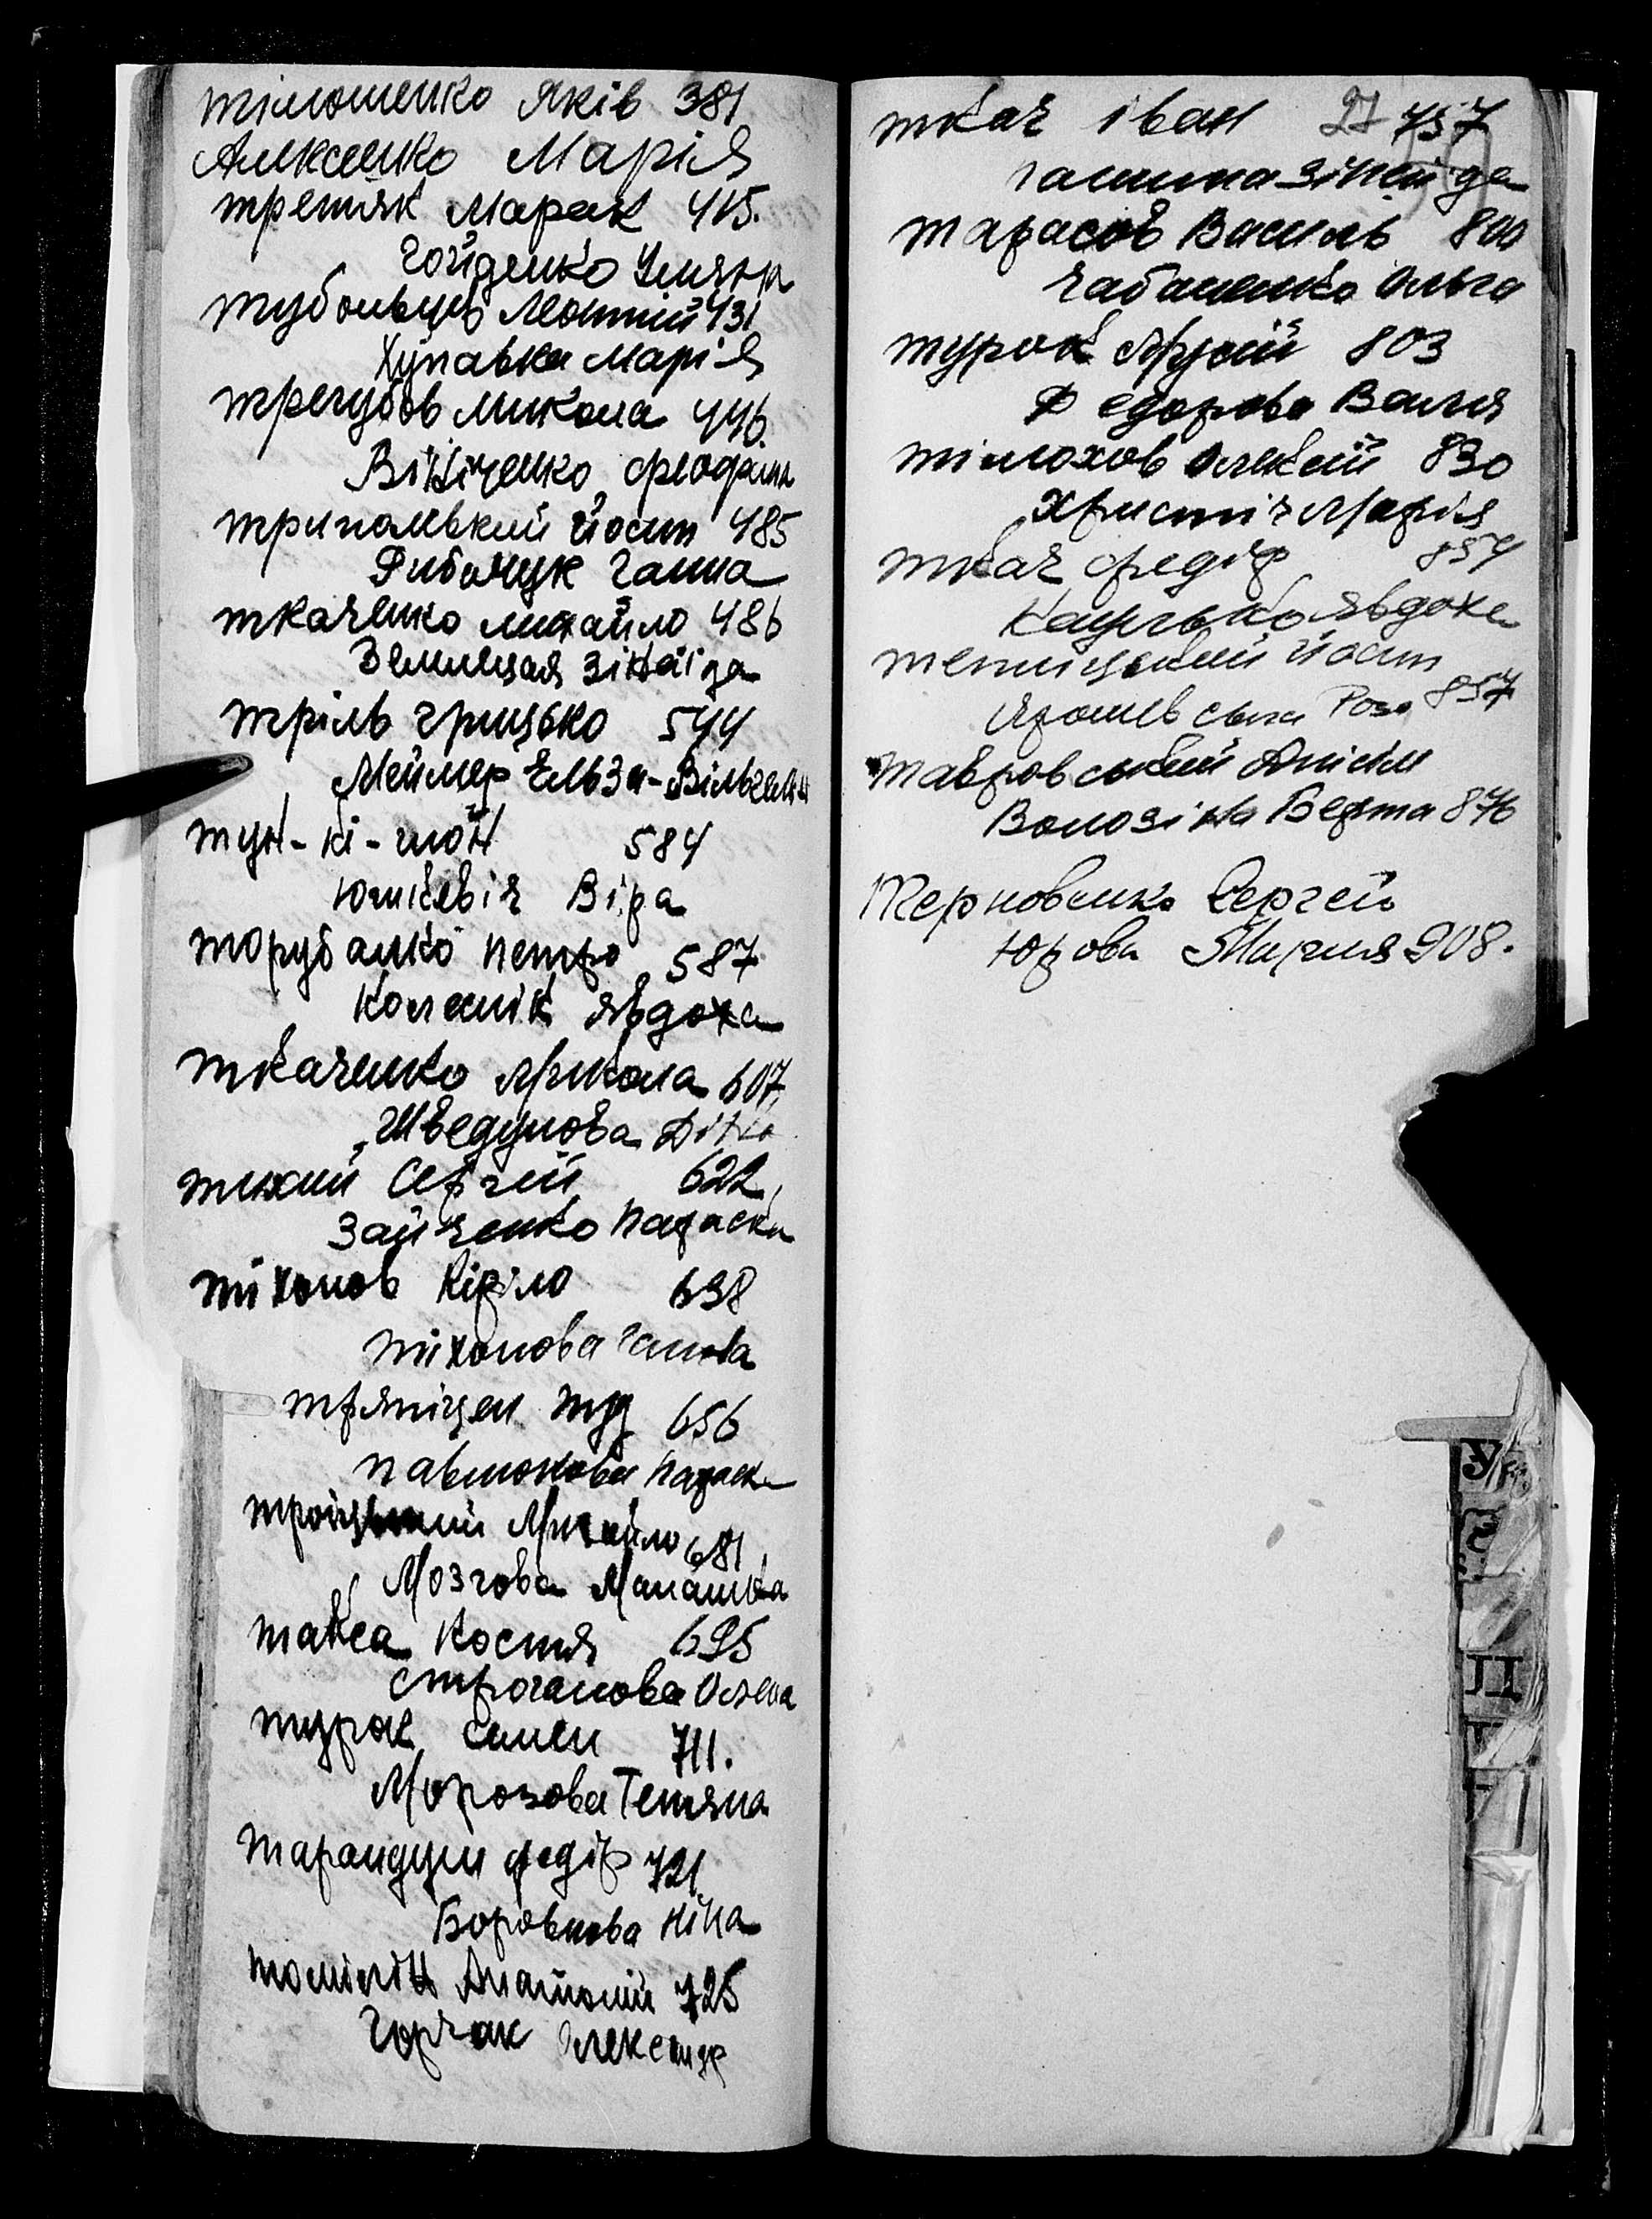 тімошенко Яків 381
Алексеєнко Марія
третяк Марак 415.
Гойденко Уляна
тубольцев Леонтий 431
Хупавка Марія
трегубов Микола 446.
Вінніченко Феодосія
трипольский Йосип 485
Рибачук Ганна
ткаченко михайло 486
Земницкая Зінаїда
тріль грицько 544
Меймер Ельза-Вільгельм
тун-кі-шон 584
Юшкевіч Віра
торубанко петро 587
Колесник явдоха
ткаченко Микола 607
Шведунова Діна
тихий Сергій 622
Зайченко параска
тіхонов Кіріло 638
тіхонова ганна
656
павлюкова параска
троицький Михайло 681
Мозгова Маланка
такса Костя 695
строганова Олена
турок семен 711.
Морозова Тетяна
тарандуш федір 721.
Боровкова ніна
томілін Анатолий 725
Горчак Олександр
ткач іван 27 757
ганшна зінаїда
тарасов Василь 800
чабаненко Ольга
турок 803
Федорова Валя
тімохов Олексій 830
Христич Марія
ткач федір 854
явдоха
теплицький йосип
Ярошевська Роза 857
тавровський
Волозіна Берта 876
Терновенко Сергей
Юрова Мария 908.
У